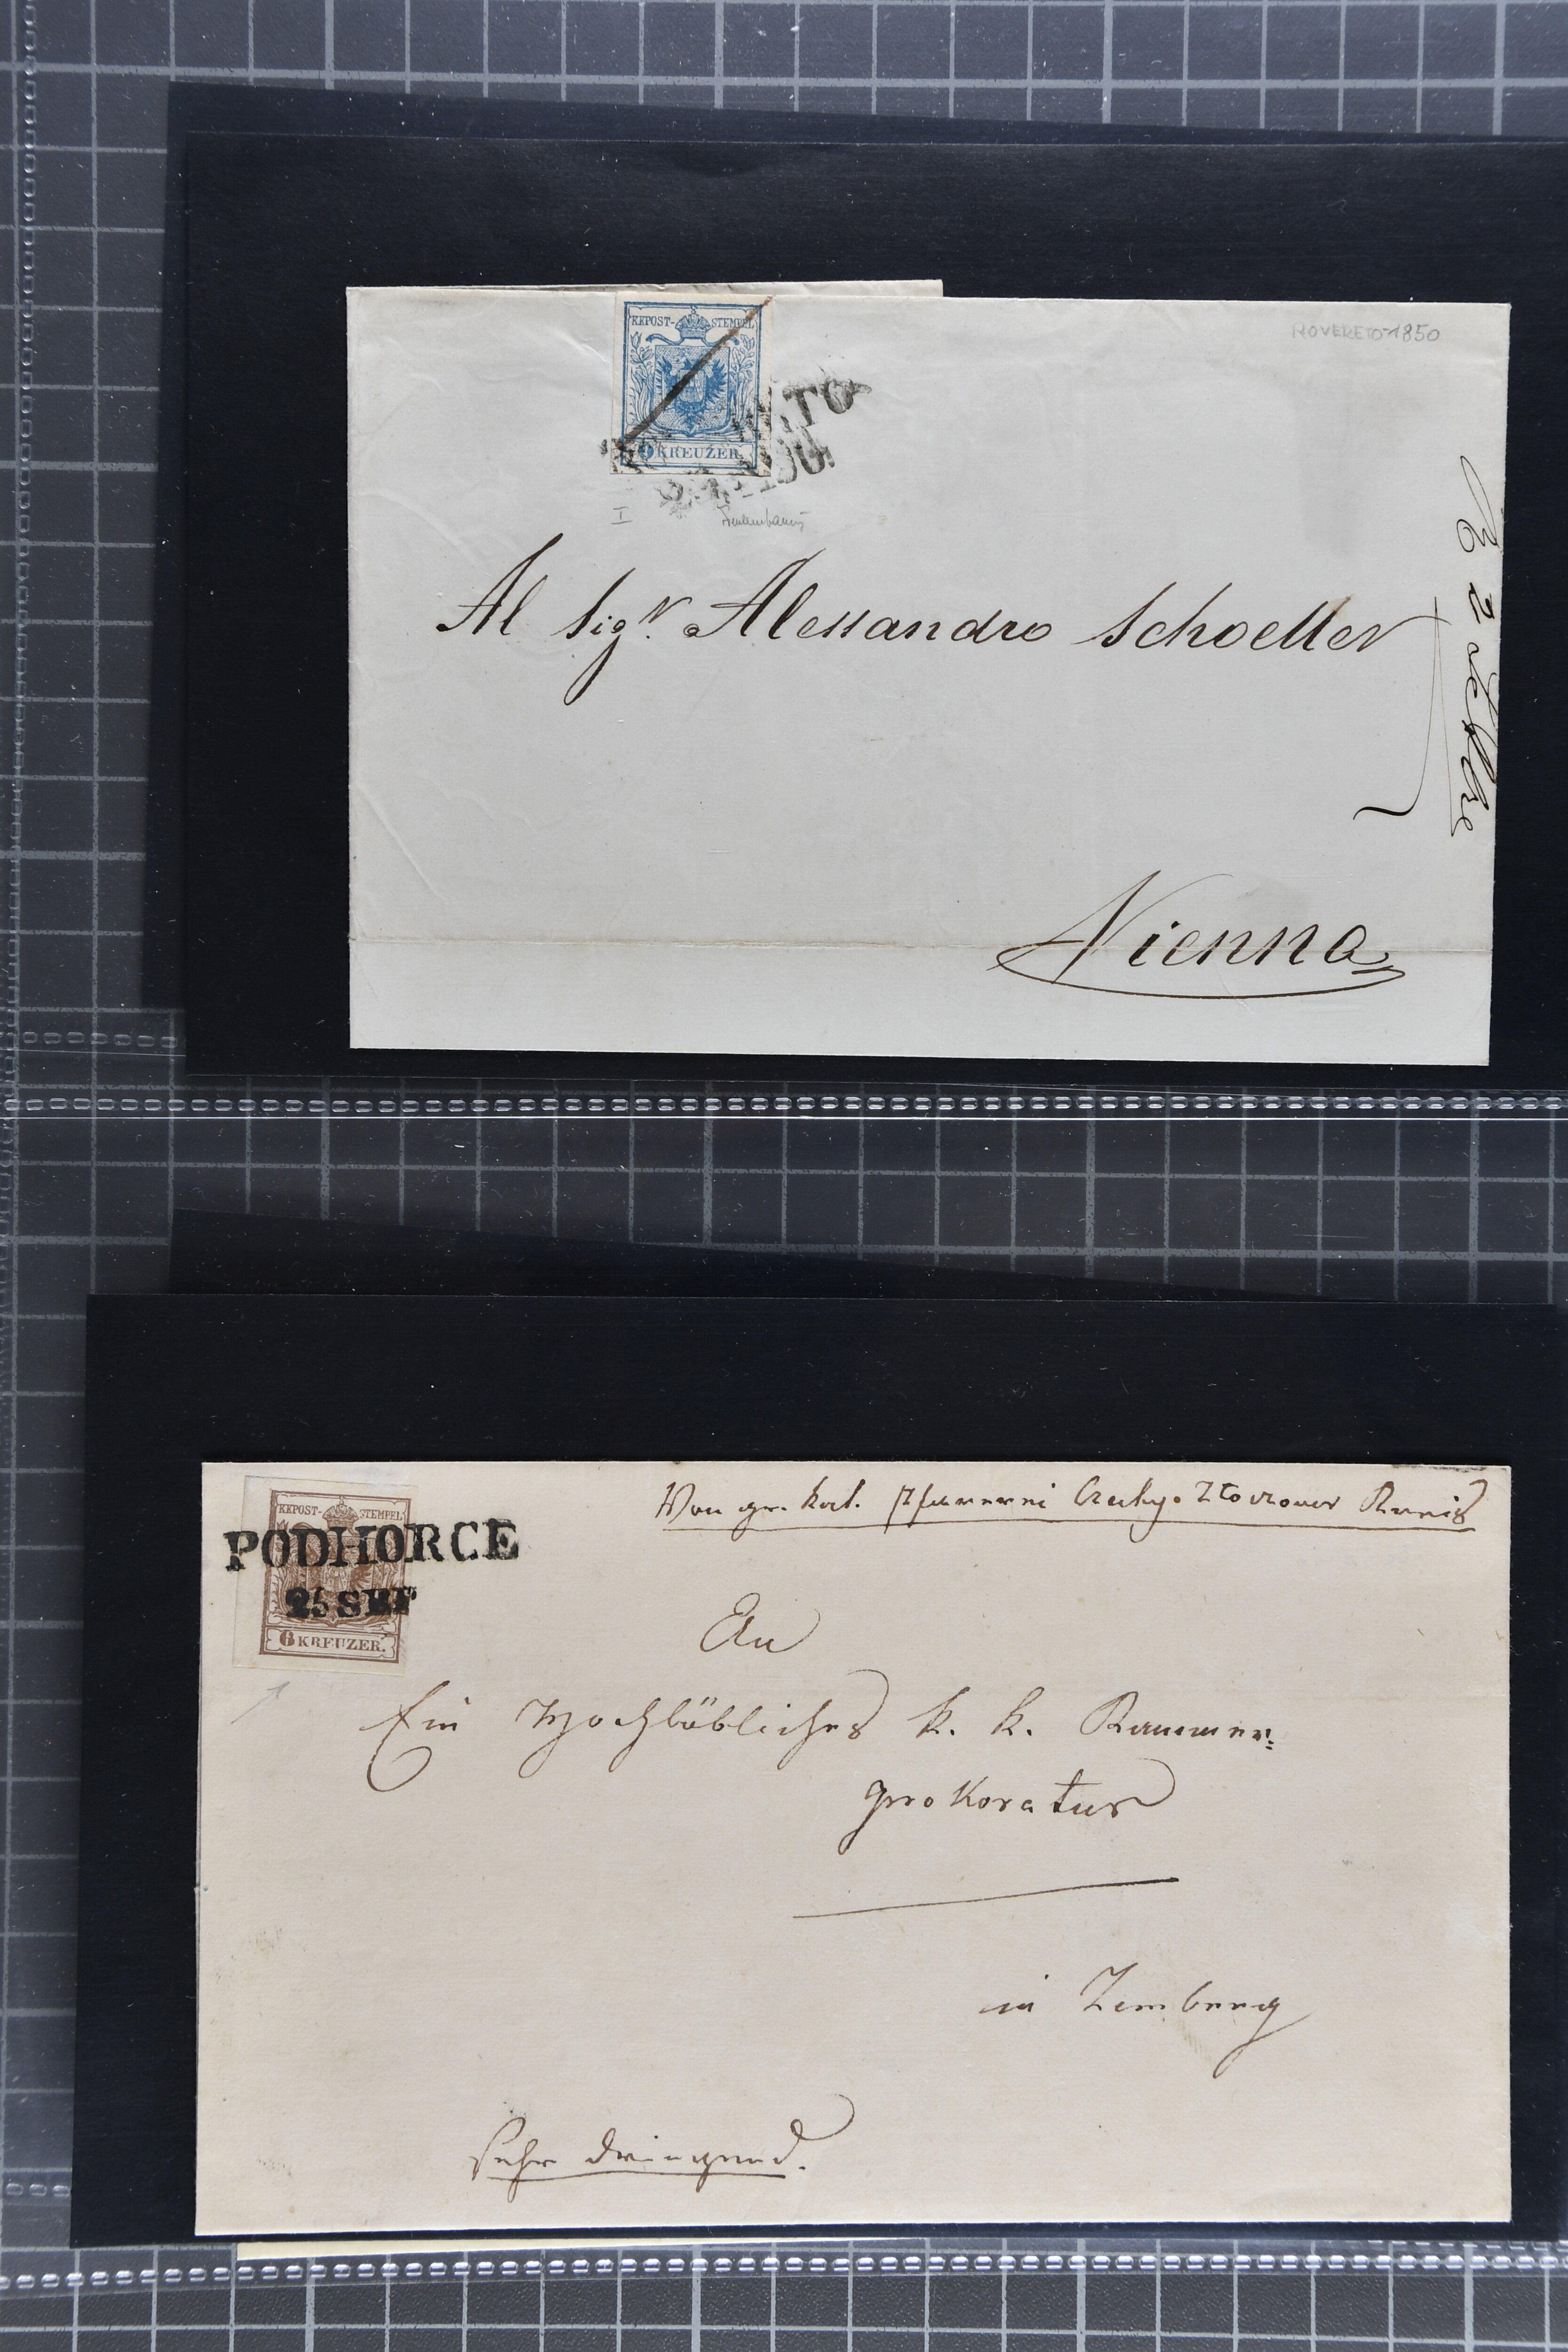 KKPOST-STEMPEL
9 KREUZER.
ROVERETO 1850
I
Al Sigr. Alessandro Schoeller
Vienna
KKPOST-STEMPEL
PODHORCE
25 SEP
6 KREUZER.
Von gr. kat.
An
Ein Hochlöbliches k. k. Kammer=
prokoratur
in Lemberg
Sehr dringend.